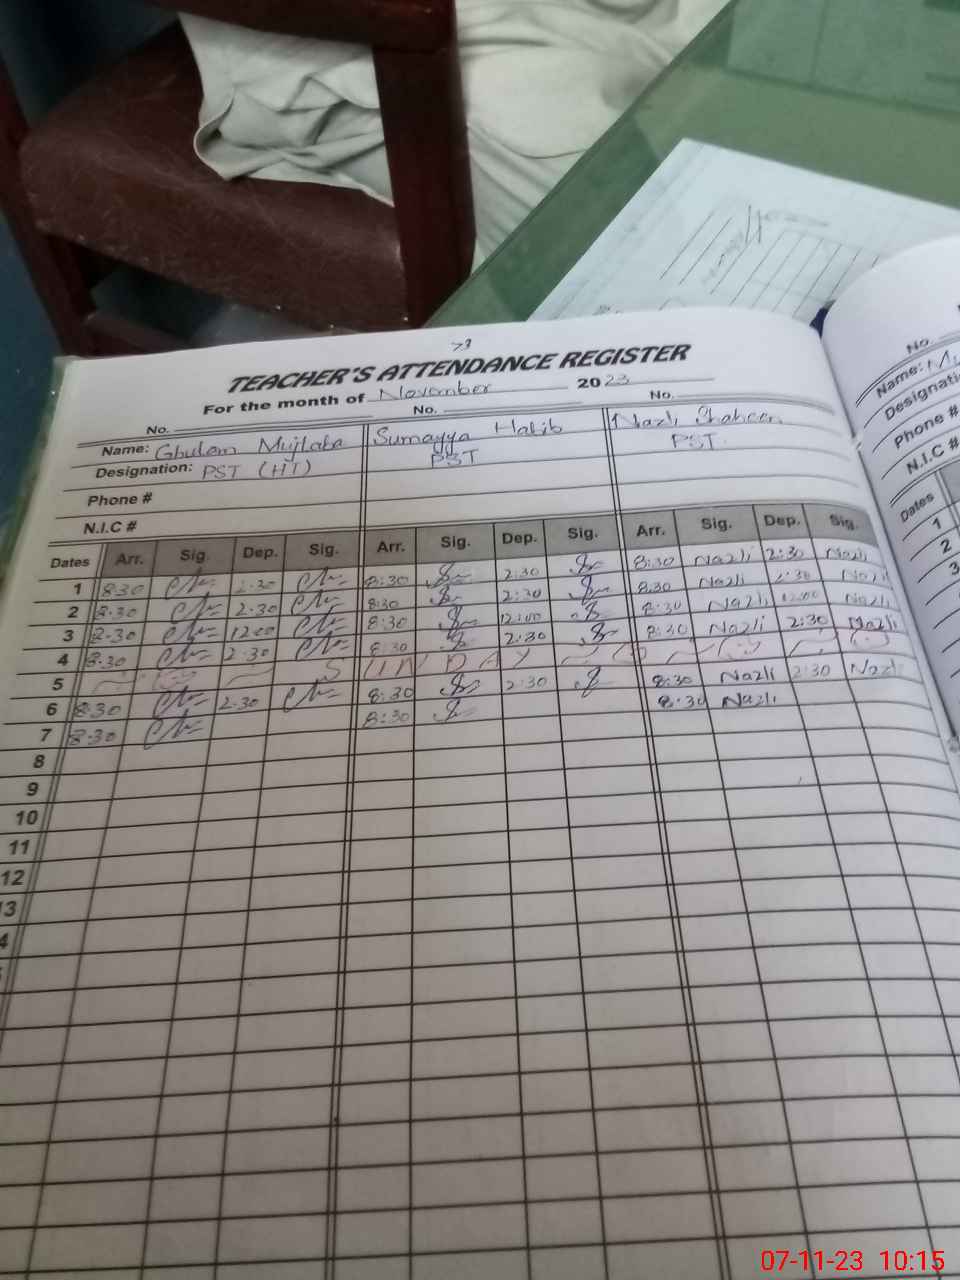 TEACHER'S ATTENDANCE REGISTER
For the month of November 2023
No. No. No.
Name: Ghulam Mujtaba Sumayya Habib Nazli Shaheen
Designation: PST (HT) PST PST.
Phone #
N.I.C #
Dates Arr. Sig. Dep. Sig. Arr. Sig. Dep. Sig. Arr. Sig. Dep. Sig.
1 8:30 2:30 8:30 2:30 8:30 Nazli 2:30 Nazli
2 8:30 2:30 8:30 2:30 8:30 Nazli 2:30 Nazli
3 8:30 12:00 8:30 12:00 8:30 Nazli 12:00 Nazli
4 8:30 2:30 8:30 2:30 8:30 Nazli 2:30 Nazli
5 SUNDAY
6 8:30 2:30 8:30 2:30 8:30 Nazli 2:30 Nazli
7 8:30 8:30 8:30 Nazli
8
9
10
11
12
13
No.
Name:
Phone #
N.I.C #
Dates
1
2
3
07-11-23 10:15